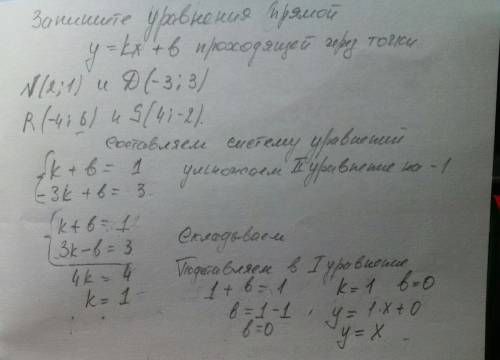 Запишите уравнения прямой
y = kx + b проходящей через точки
N(2;1) и D(-3;3)
R(-4;6) и S(4;-2).
Составляем систему уравнений
k + b = 1 умножаем II уравнение на -1
-3k + b = 3
k + b = 1
3k - b = 3 Складываем
4k = 4 Подставляем в I уравнение
k = 1 1 + b = 1 k = 1 b = 0
b = 1 - 1 y = 1·x + 0
b = 0 y = x